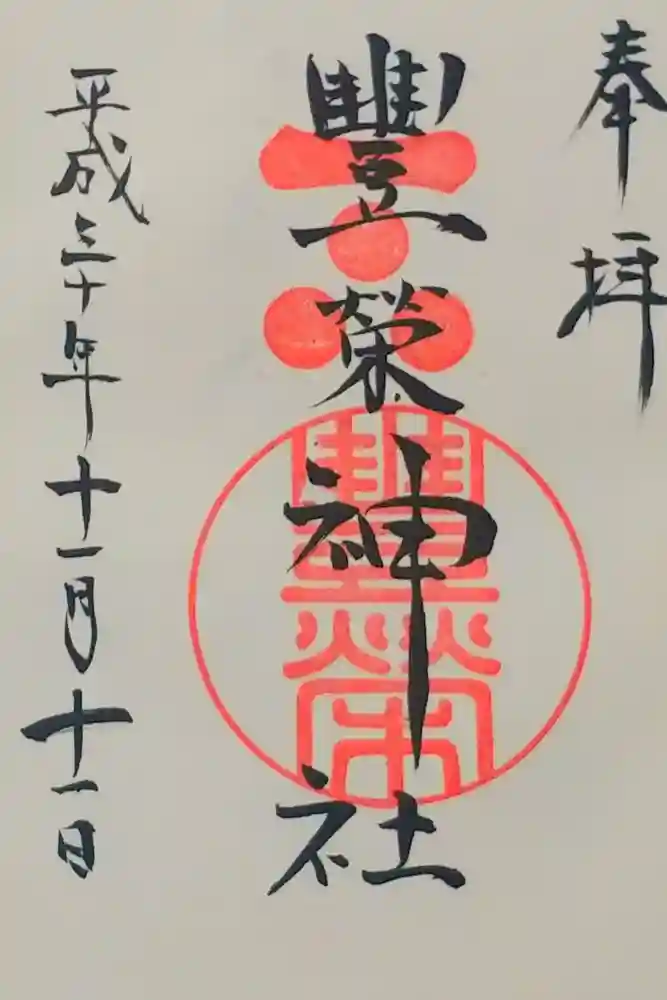 奉拝
豐榮神社
豐榮
平成三十年十一月十一日